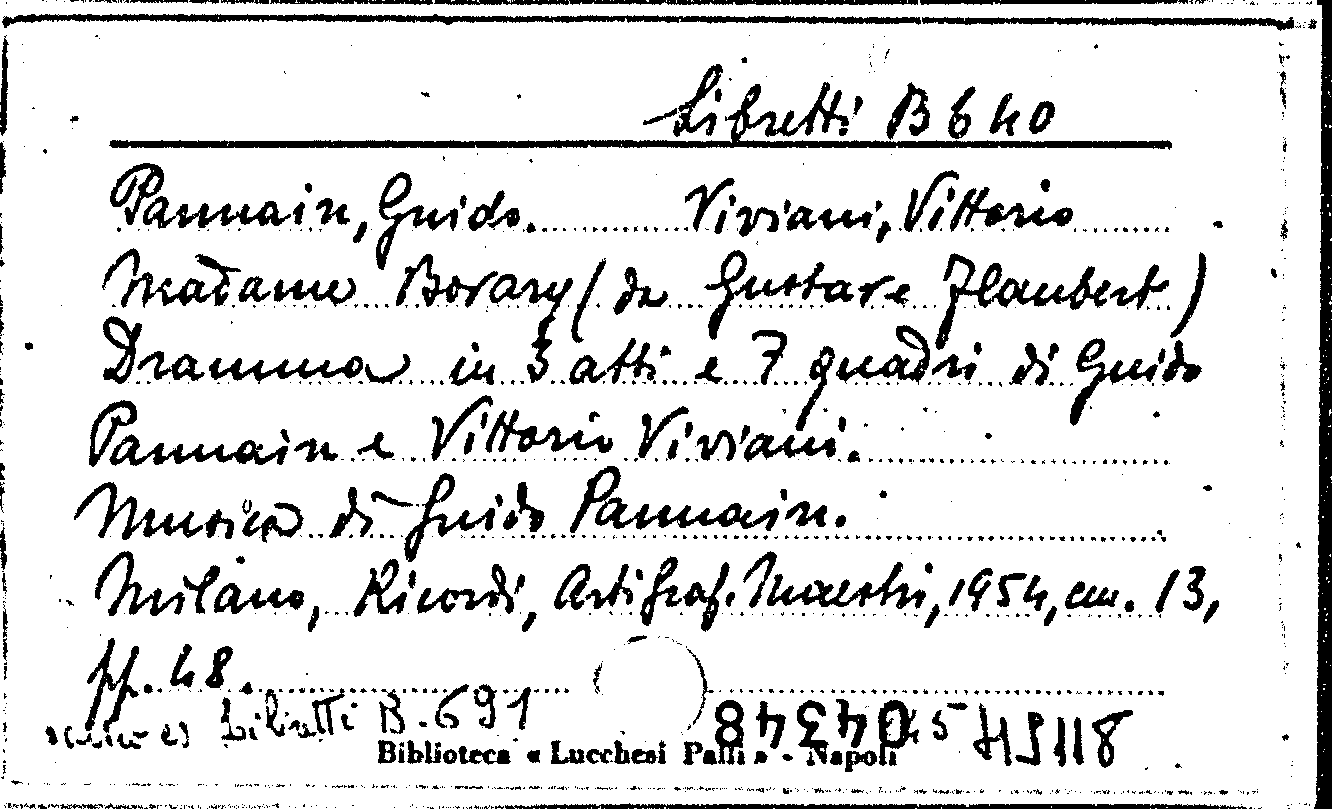 Libretti B 640
Pannain, Guido. Viviani, Vittorio
Madame Bovary (da Gustave Flaubert)
Dramma in 3 atti e 7 quadri di Guido
Pannain e Vittorio Viviani.
Musica di Guido Pannain.
Milano, Ricordi, Arti Graf. Maestri, 1954, cm. 13,
pp. 48.
Libretti B. 691
04348
Biblioteca « Lucchesi Palli » - Napoli